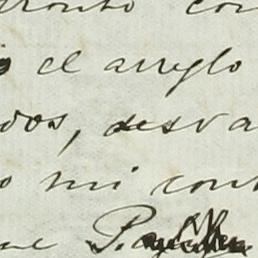 pronto con
o el arreglo
dos, desva
o mi cont
ne P.